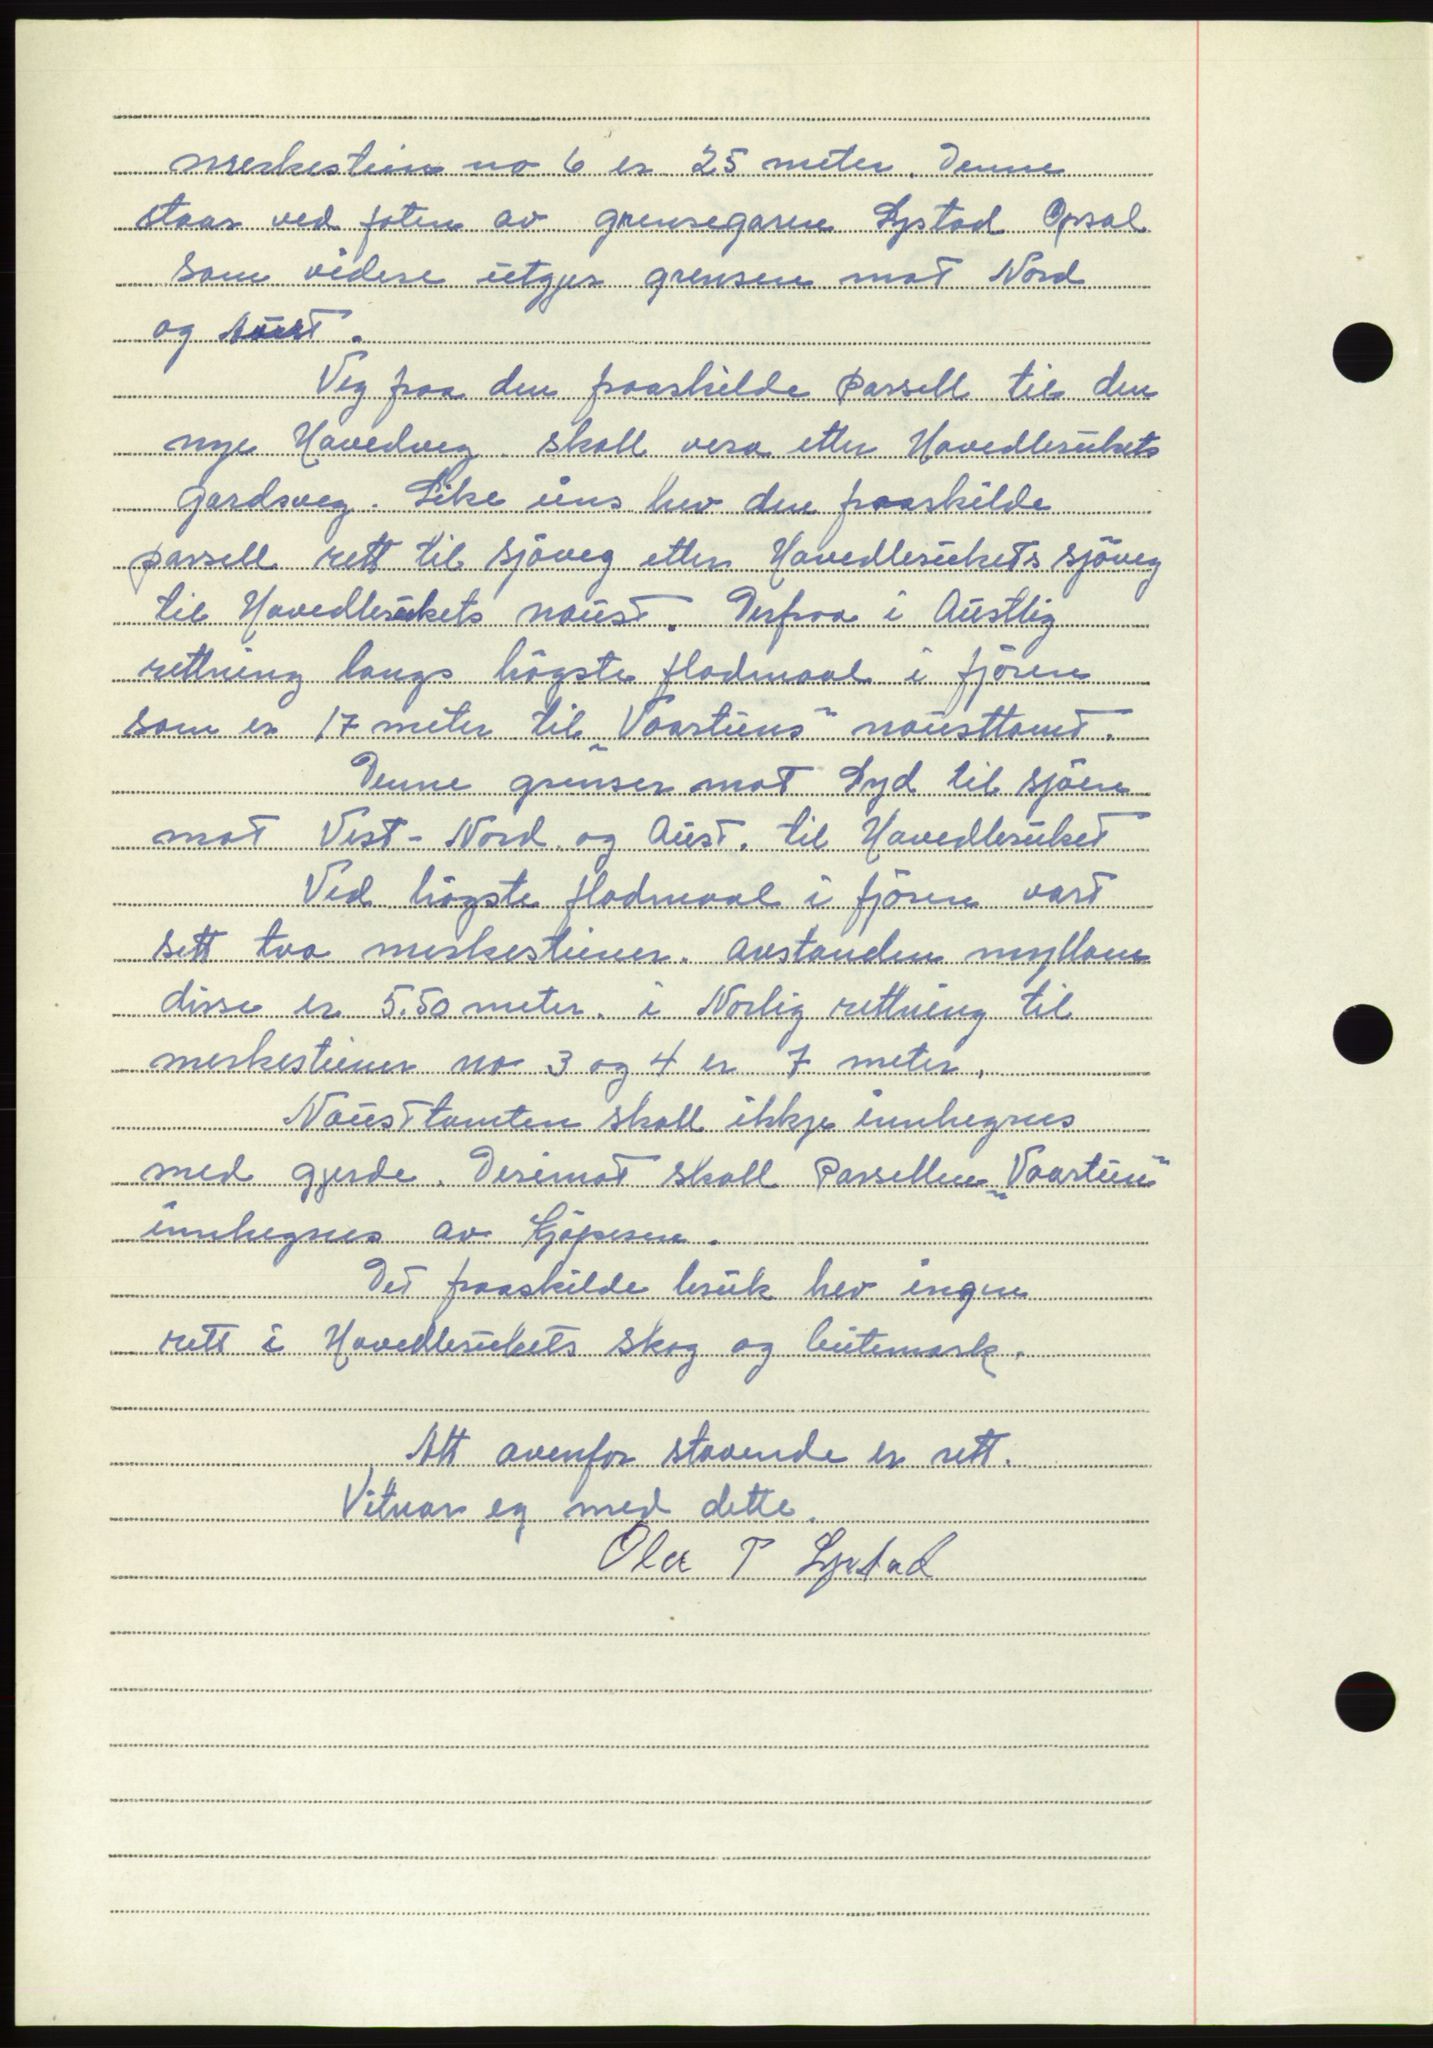 merkestein no 6 er 25 meter. Denne
staar ved foten av grensegaren Lystad Opsal
som videre utgjer grensen mot Nord
og Aust.
Veg fraa den fraaskilde Parsell til den
nye Hovedveg. skall vera etter Hovedbrukets
gardsveg. Like eins hev den fraaskilde
parsell rett til sjöveg etter Hovedbrukets sjöveg
til Hovedbrukets naust. Derfraa i Austlig
rettning langs högste flodmaal i fjören
som er 17 meter til "Vaartuns" nausttomt.
Denne grenser mot Syd til sjöen
mot Vest - Nord og Aust. til Hovedbruket
Ved högste flodmaal i fjören vart
sett tvo merkesteiner. avstanden myllom
disse er 5.50 meter. i Norlig rettning til
merkesteiner no 3 og 4 er 7 meter.
Nausttomten skall ikkje innhegnes
med gjerde. Derimot skall Parsellen "Vaartun"
innhegnes av Kjöperen.
Det fraaskilde bruk hev ingen
rett i Hovedbrukets skog og beitemark.
Att ovenfor stavende er rett.
Vitnar eg med dette.
Ola T Lystad